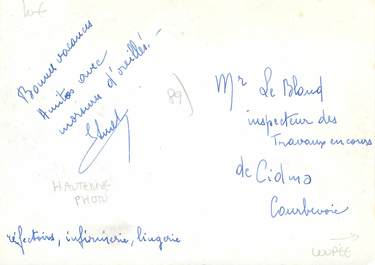 Bonnes vacances
Amitiés avec
morsures d'oreilles. -
89)
HAUTERIVE
PHOTO
réfectoirs, infirmerie, lingerie
Mr Le Bland
inspecteur des
Travaux en cours
de Cidma
Courbevoie
LOUPÉE